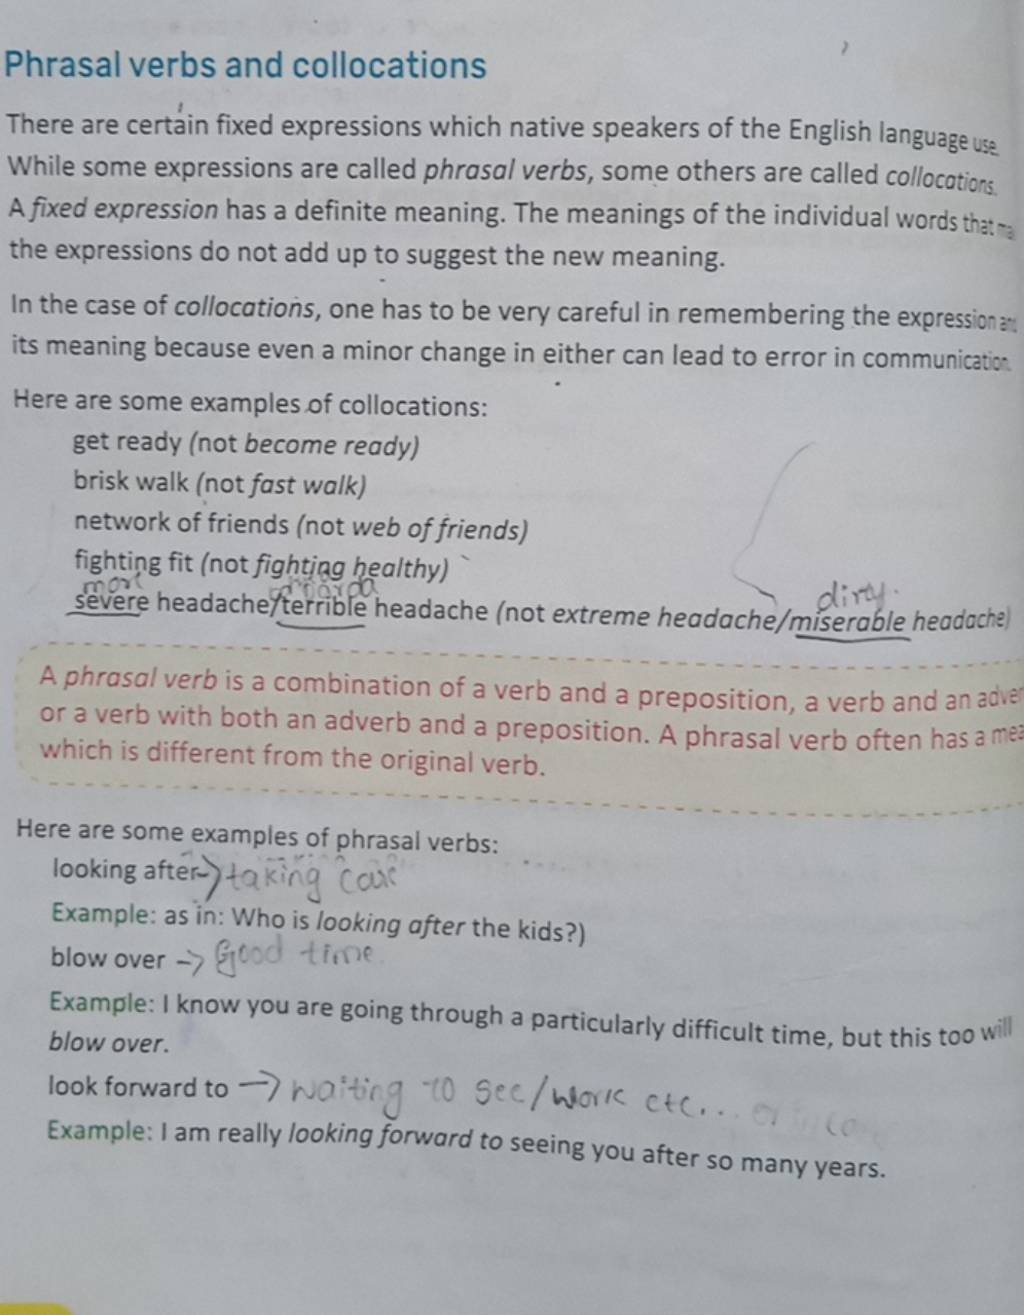 Phrasal verbs and collocations
There are certain fixed expressions which native speakers of the English language use.
While some expressions are called phrasal verbs, some others are called collocations.
A fixed expression has a definite meaning. The meanings of the individual words that
the expressions do not add up to suggest the new meaning.
In the case of collocations, one has to be very careful in remembering the expression and
its meaning because even a minor change in either can lead to error in communication.
Here are some examples of collocations:
get ready (not become ready)
brisk walk (not fast walk)
network of friends (not web of friends)
fighting fit (not fighting healthy)
more dirty.
severe headache/terrible headache (not extreme headache/miserable headache)
A phrasal verb is a combination of a verb and a preposition, a verb and an adver
or a verb with both an adverb and a preposition. A phrasal verb often has a mea
which is different from the original verb.
Here are some examples of phrasal verbs:
looking after → taking care
Example: as in: Who is looking after the kids?)
blow over → Good time
Example: I know you are going through a particularly difficult time, but this too will
blow over.
look forward to → waiting to see/work etc...
Example: I am really looking forward to seeing you after so many years.